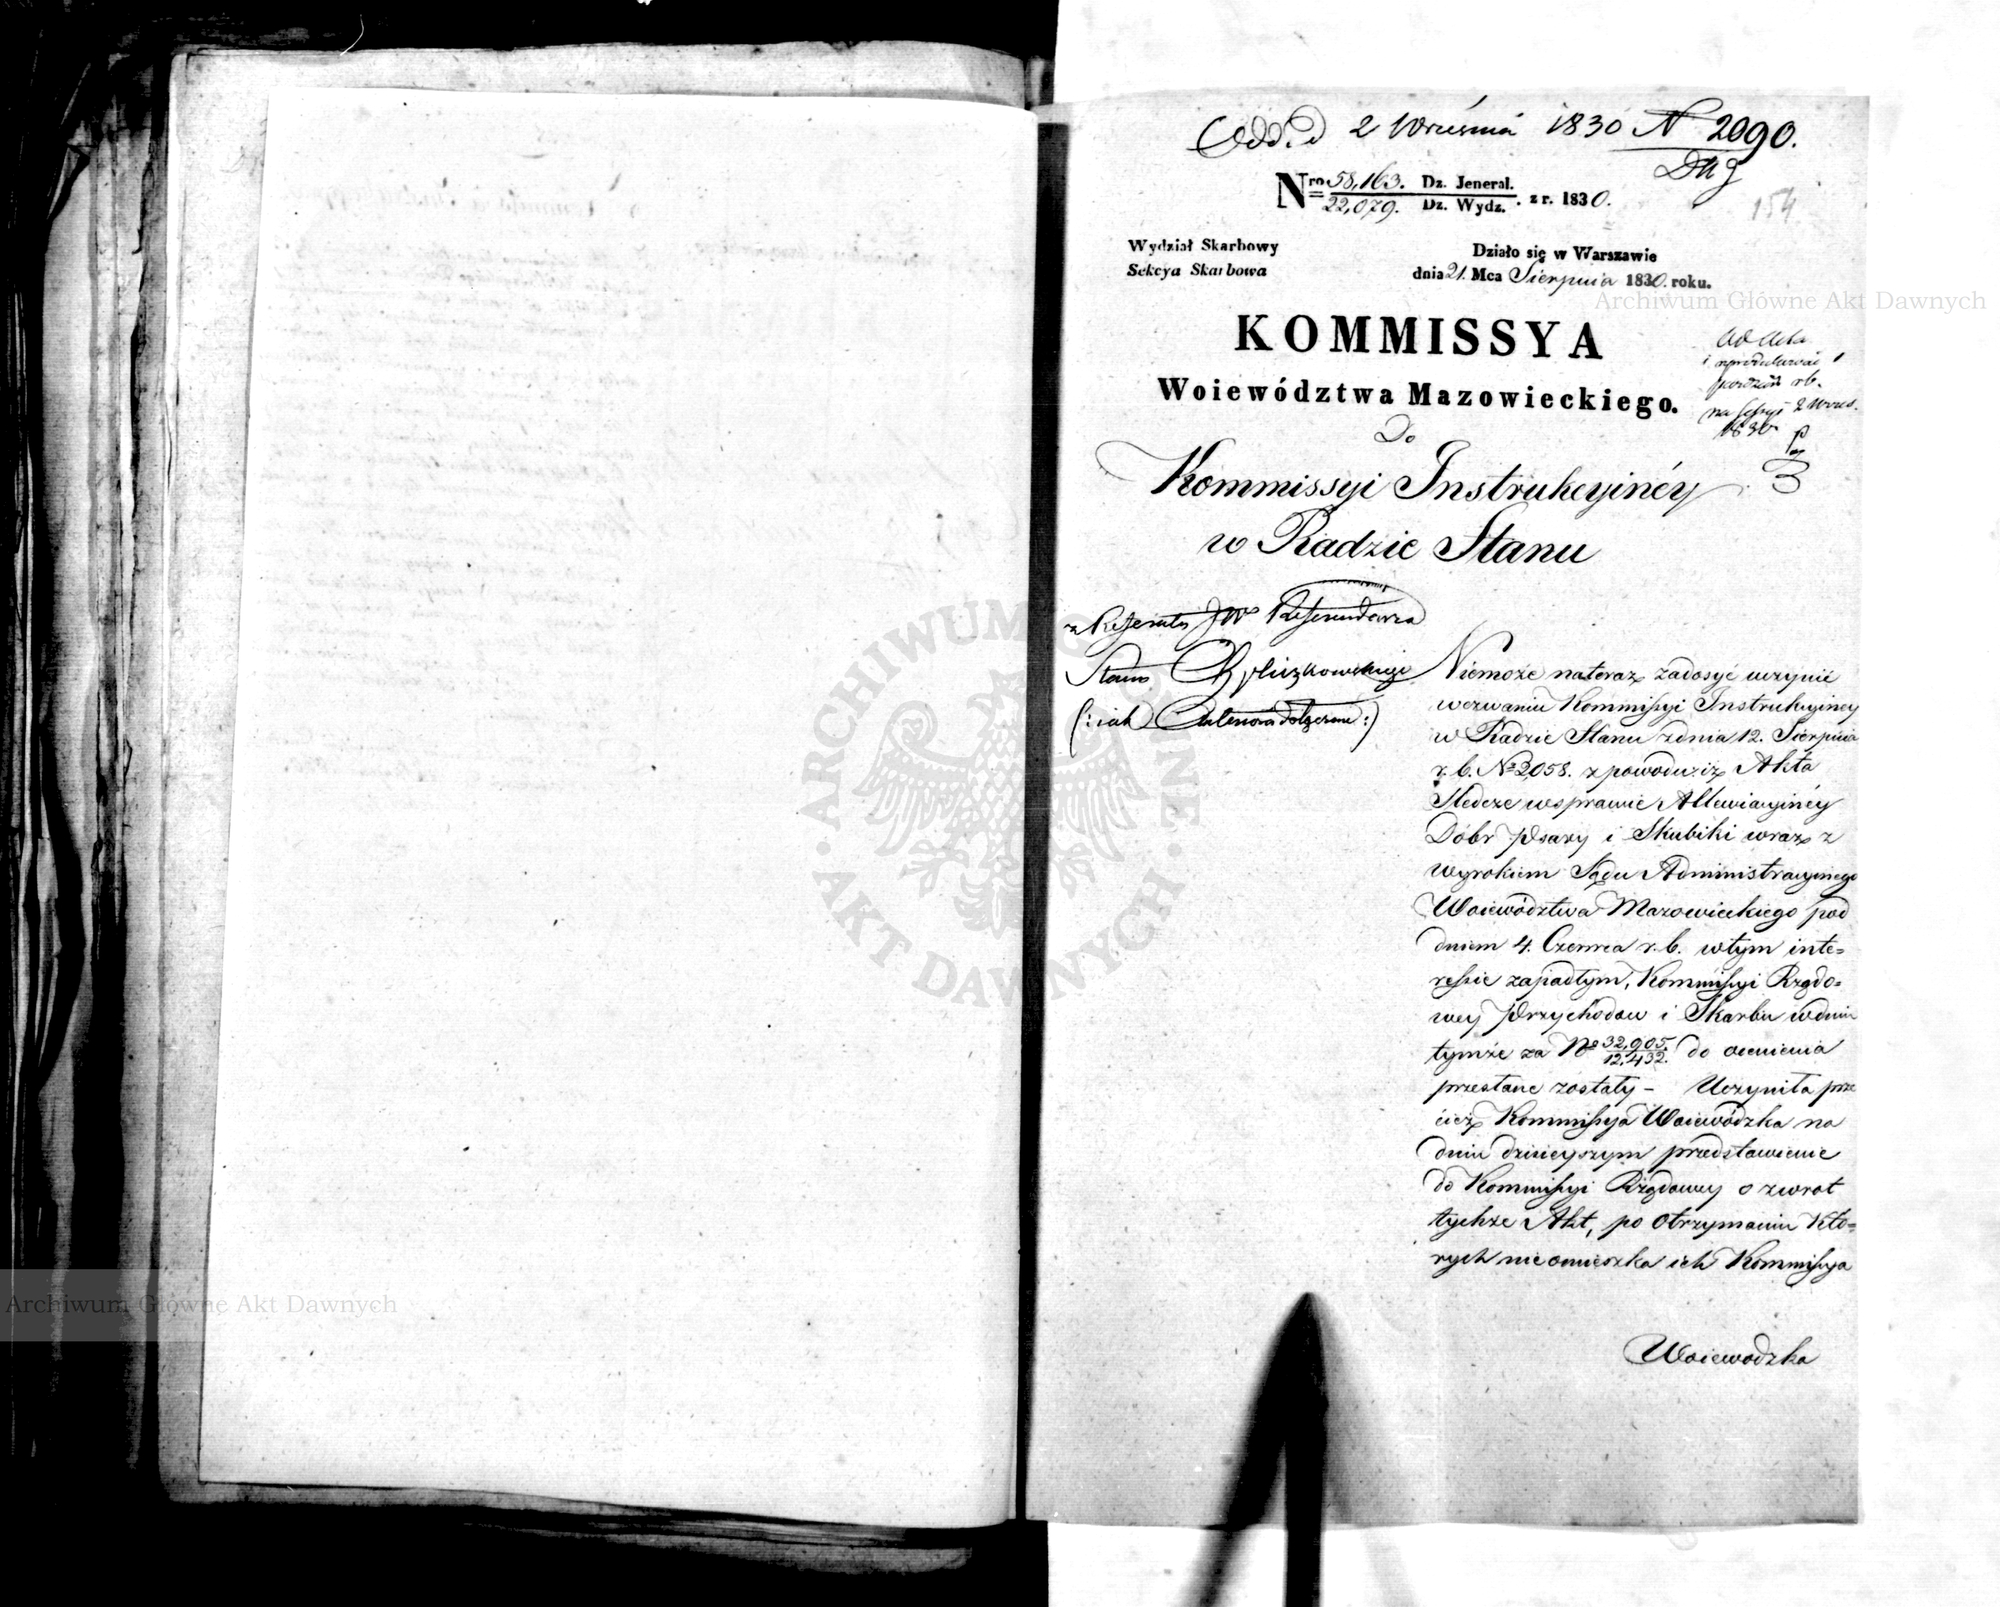 Odd. d 2 Września 1830 N 2090.
Nro 58,163. Dz. Jeneral.
22,079. Dz. Wydz. z r. 1830.
154
Wydział Skarbowy
Sekcya Skarbowa
Działo się w Warszawie
dnia 21. Mca Sierpnia 1830. roku.
KOMMISSYA
Woiewództwa Mazowieckiego.
Ad Acta
i
rb.
na sessyi 2 Wrześ.
1830
Do
Kommissyi Instrukcyinéy
w Radzie Stanu
z Referatu JW Referendarza
Stanu
(: iak :)
Niemoże nateraz zadosyć uczynić
wezwaniu Kommissyi Instrukcyiney
w Radzie Stanu z dnia 12. Sierpnia
r. b. No 2,058. z powodu iż Akta
Sledcze w sprawie Allewiacyinéy
Dóbr Psary i Skubiki wraz z
wyrokiem Sądu Administracyinego
Woiewództwa Mazowieckiego pod
dniem 4. Czerwca r. b. w tym inte=
ressie zapadłym, Kommissyi Rządo=
wey Przychodow i Skarbu w dniu
tymże za No 32,905. / 12,432. do ocenienia
przesłane zostały – Uczyniła prze
cież Kommissya Woiewódzka na
dniu dzisieyszym przedstawienie
do Kommissyi Rządowey o zwrot
tychże Akt, po otrzymaniu któ=
rych nieomieszka ich Kommissya
Woiewodzka
Archiwum Główne Akt Dawnych
ARCHIWUM GŁÓWNE AKT DAWNYCH
Archiwum Główne Akt Dawnych